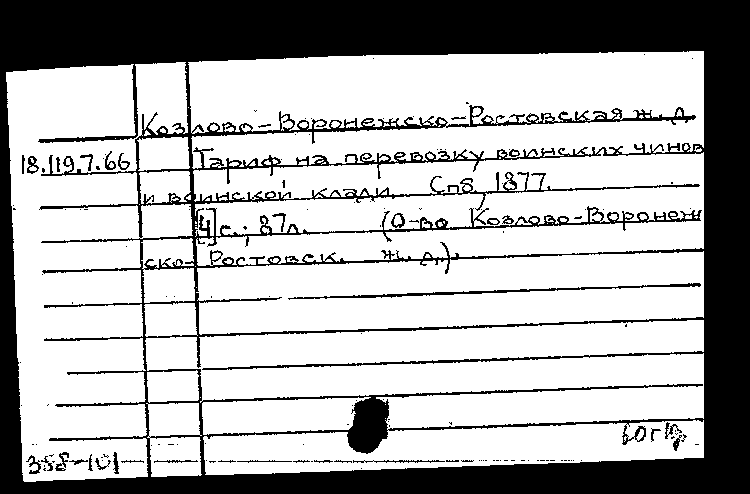 Козлово-Воронежско-Ростовская ж. д.
18.119.7.66 Тариф на перевозку воинских чинов
и воинской клади. Спб, 1877.
[4] с.; 87 л. (О-во Козлово-Воронеж
ско-Ростовск. ж. д.).
358-101